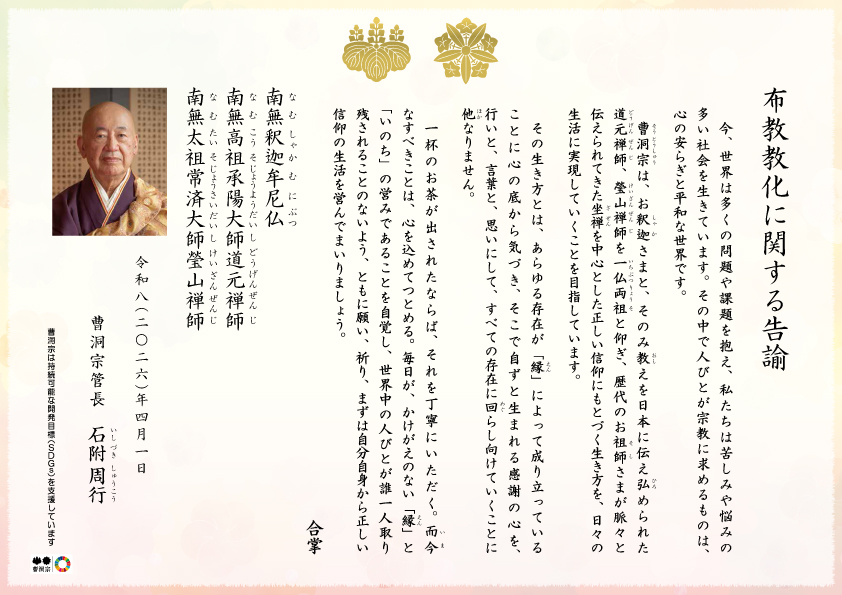 布教教化に関する告諭
今、世界は多くの問題や課題を抱え、私たちは苦しみや悩みの
多い社会を生きています。その中で人びとが宗教に求めるものは、
心の安らぎと平和な世界です。
曹洞宗は、お釈迦さまと、そのみ教えを日本に伝え弘められた
道元禅師、瑩山禅師を一仏両祖と仰ぎ、歴代のお祖師さまが脈々と
伝えられてきた坐禅を中心とした正しい信仰にもとづく生き方を、日々の
生活に実現していくことを目指しています。
その生き方とは、あらゆる存在が「縁」によって成り立っている
ことに心の底から気づき、そこで自ずと生まれる感謝の心を、
行いと、言葉と、思いにして、すべての存在に回らし向けていくことに
他なりません。
一杯のお茶が出されたならば、それを丁寧にいただく。而今
なすべきことは、心を込めてつとめる。毎日が、かけがえのない「縁」と
「いのち」の営みであることを自覚し、世界中の人びとが誰一人取り
残されることのないよう、ともに願い、祈り、まずは自分自身から正しい
信仰の生活を営んでまいりましょう。
合掌
南無釈迦牟尼仏
南無高祖承陽大師道元禅師
南無太祖常済大師瑩山禅師
令和八(二〇二六)年四月一日
曹洞宗管長 石附周行
曹洞宗は持続可能な開発目標(SDGs)を支援しています
曹洞宗